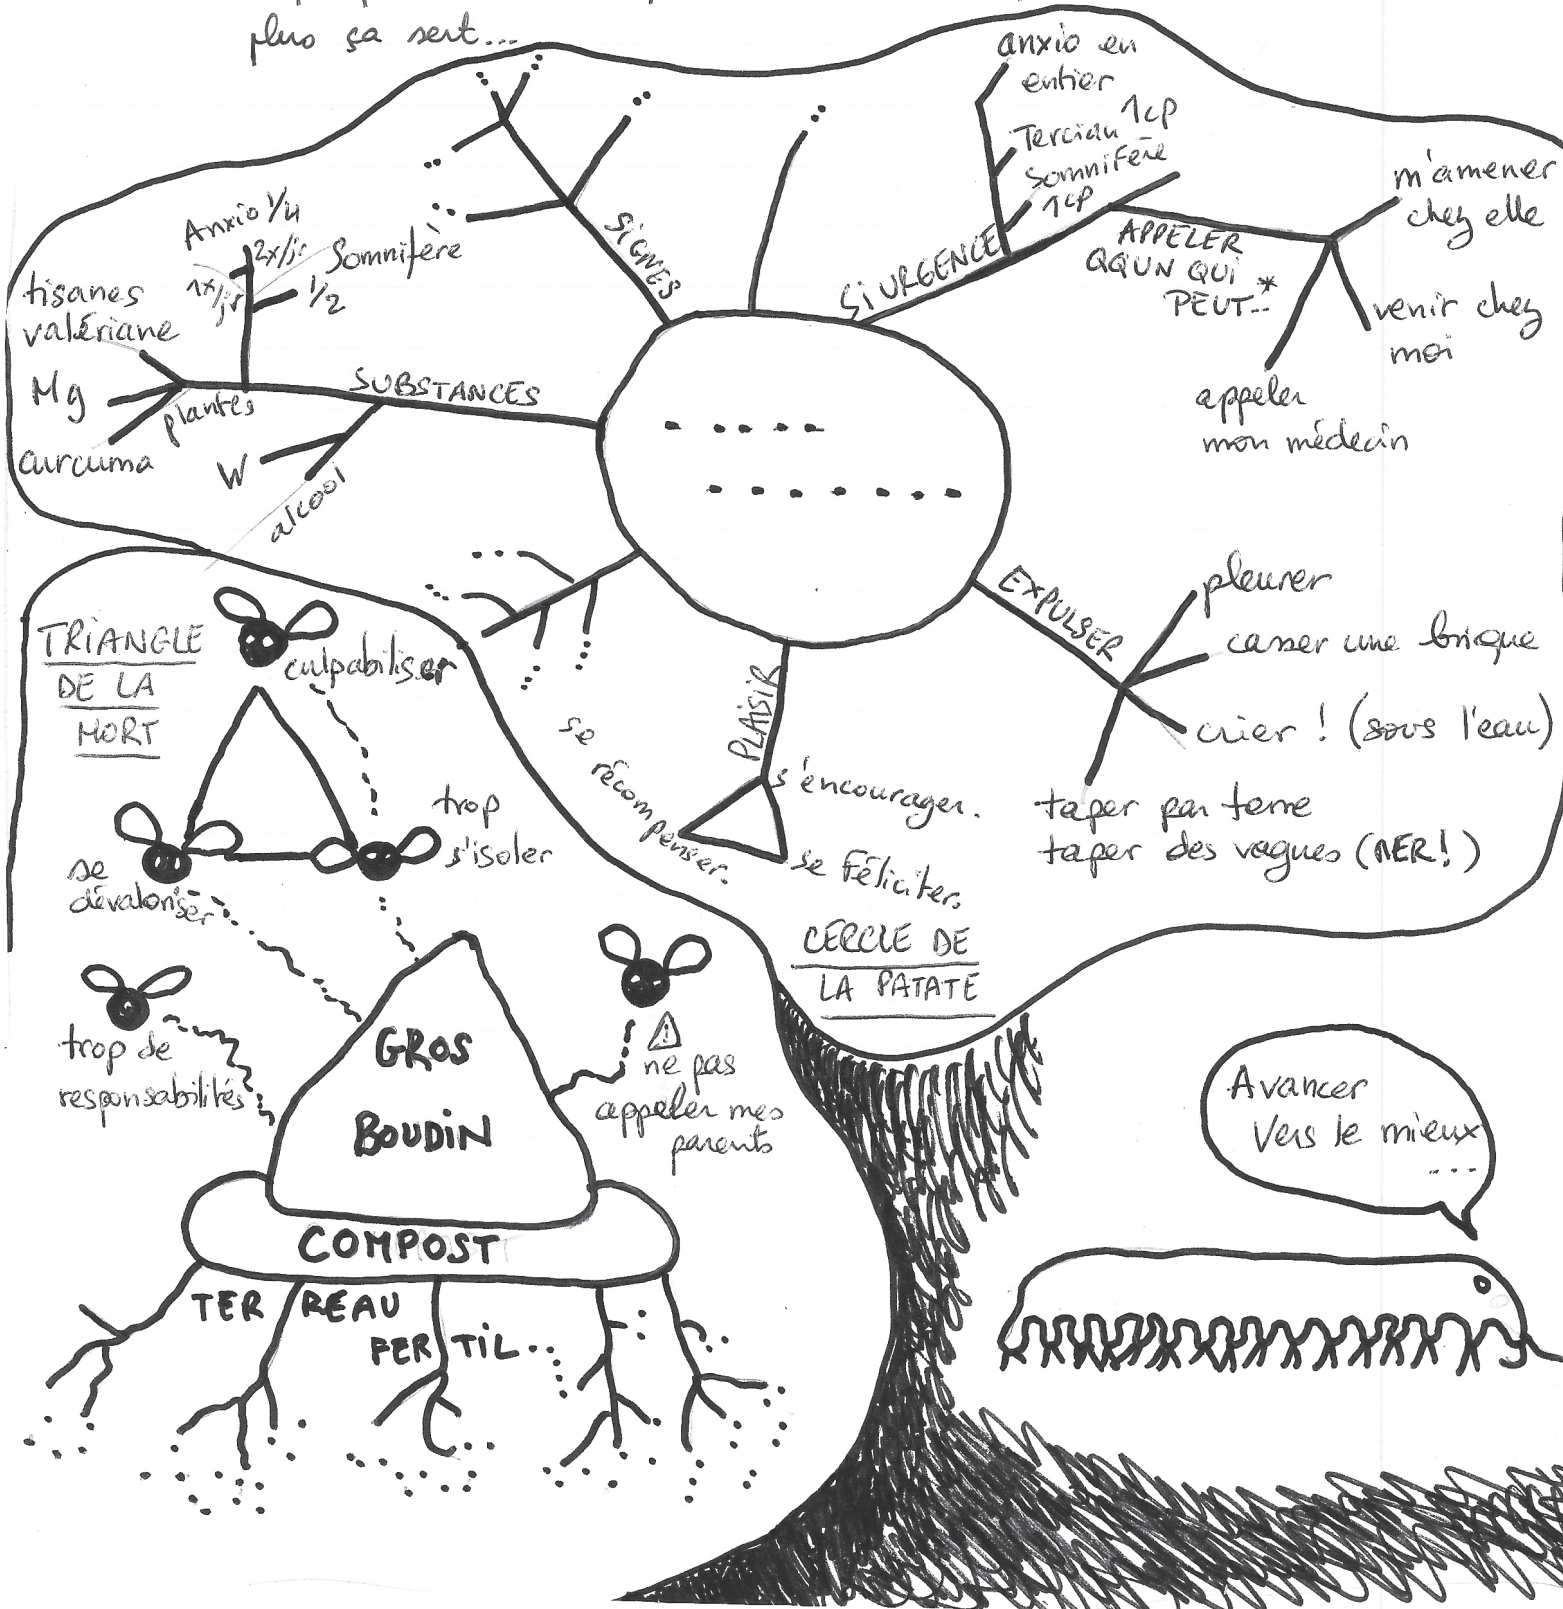 plus ça sert...
anxio en
entier
Tercian 1cp
Somnifère
1cp
m'amener
chez elle
SI URGENCE
APPELER
QQUN QUI
PEUT...*
venir chez
moi
appeler
mon médecin
SIGNES
Anxio 1/4
2x/jr
1x/jr
Somnifère
1/2
tisanes
valériane
Mg
curcuma
plantes
SUBSTANCES
W
alcool
EXPULSER
pleurer
casser une brique
crier ! (sous l'eau)
taper par terre
taper des vagues (MER!)
PLAISIR
s'encourager.
se récompenser.
se féliciter.
CERCLE DE
LA PATATE
TRIANGLE
DE LA
MORT
culpabiliser
trop
s'isoler
se
dévaloriser
trop de
responsabilités
ne pas
appeler mes
parents
GROS
BOUDIN
COMPOST
TERREAU
FERTIL...
Avancer
Vers le mieux
...